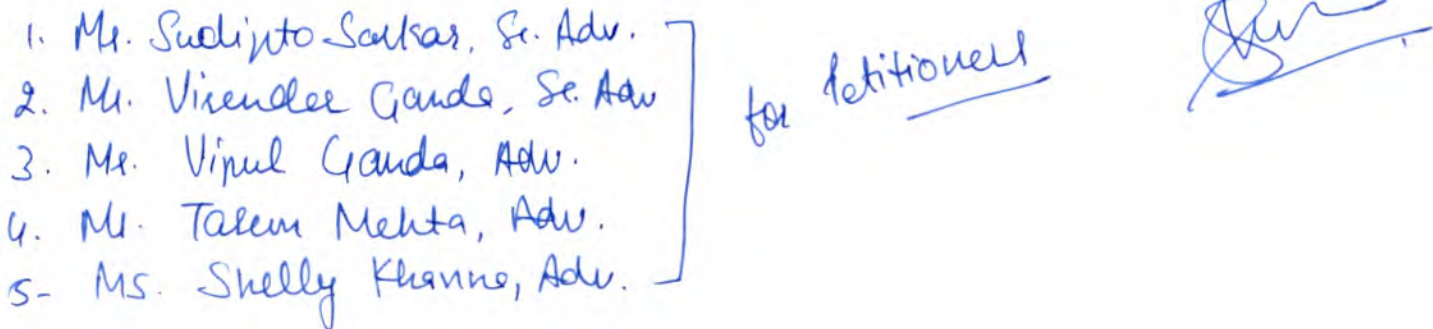 1. Mr. Sudipto Sarkar, Sr. Adv.
2. Mr. Virender Ganda, Sr. Adv
3. Mr. Vipul Ganda, Adv.
4. Mr. Tarun Mehta, Adv.
5- Ms. Shelly Khanna, Adv.
for Petitioners